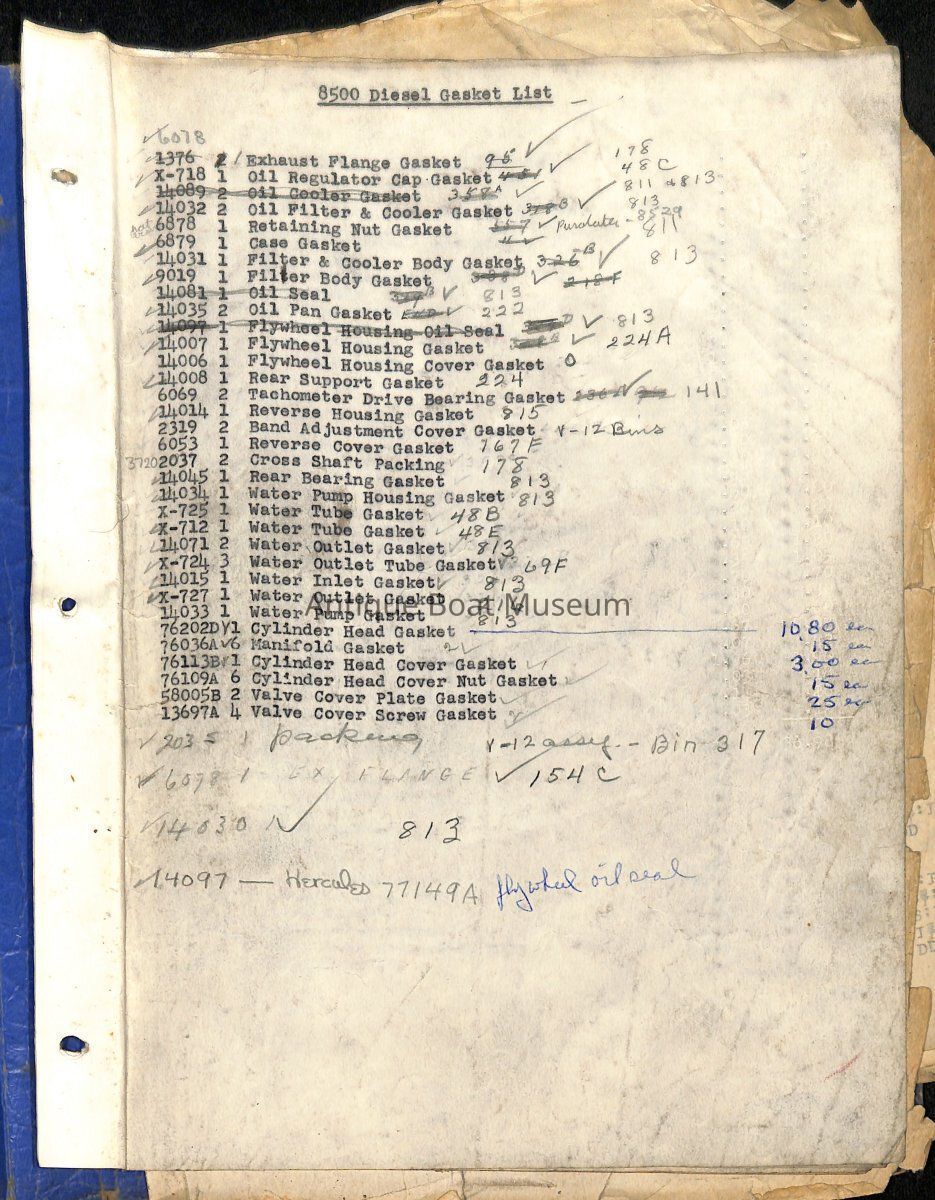 8500 Diesel Gasket List
6078
1376 2 1 Exhaust Flange Gasket 95 178
X-718 1 Oil Regulator Cap Gasket 451 48C
14089 2 Oil Cooler Gasket 358A 811 & 813
14032 2 Oil Filter & Cooler Gasket B 813
6878 1 Retaining Nut Gasket 557 Purolator - 8529
6879 1 Case Gasket 811
14031 1 Filter & Cooler Body Gasket 326B 813
9019 1 Filter Body Gasket 218F
14081 1 Oil Seal B 813
14035 2 Oil Pan Gasket 222
14097 1 Flywheel Housing Oil Seal D 813
14007 1 Flywheel Housing Gasket 224A
14006 1 Flywheel Housing Cover Gasket 0
14008 1 Rear Support Gasket 224
6069 2 Tachometer Drive Bearing Gasket 141
14014 1 Reverse Housing Gasket 815
2319 2 Band Adjustment Cover Gasket V-12 Bins
6053 1 Reverse Cover Gasket 767F
3720 2037 2 Cross Shaft Packing 178
14045 1 Rear Bearing Gasket 813
14034 1 Water Pump Housing Gasket 813
X-725 1 Water Tube Gasket 48B
X-712 1 Water Tube Gasket 48E
14071 2 Water Outlet Gasket 813
X-724 3 Water Outlet Tube Gasket 69F
14015 1 Water Inlet Gasket 813
X-727 1 Water Outlet Gasket
Antique Boat Museum
14033 1 Water Pump Gasket 813
76202D 1 Cylinder Head Gasket 10.80 ea
76036A 6 Manifold Gasket 15 ea
76113B 1 Cylinder Head Cover Gasket 3.00 ea
76109A 6 Cylinder Head Cover Nut Gasket 15 ea
58005B 2 Valve Cover Plate Gasket 25 ea
13697A 4 Valve Cover Screw Gasket 10
2035 1 packing V-12 assy. - Bin 317
6078 1 EX, FLANGE 154C
14030 1 813
14097 — Hercules 77149A flywheel oil seal